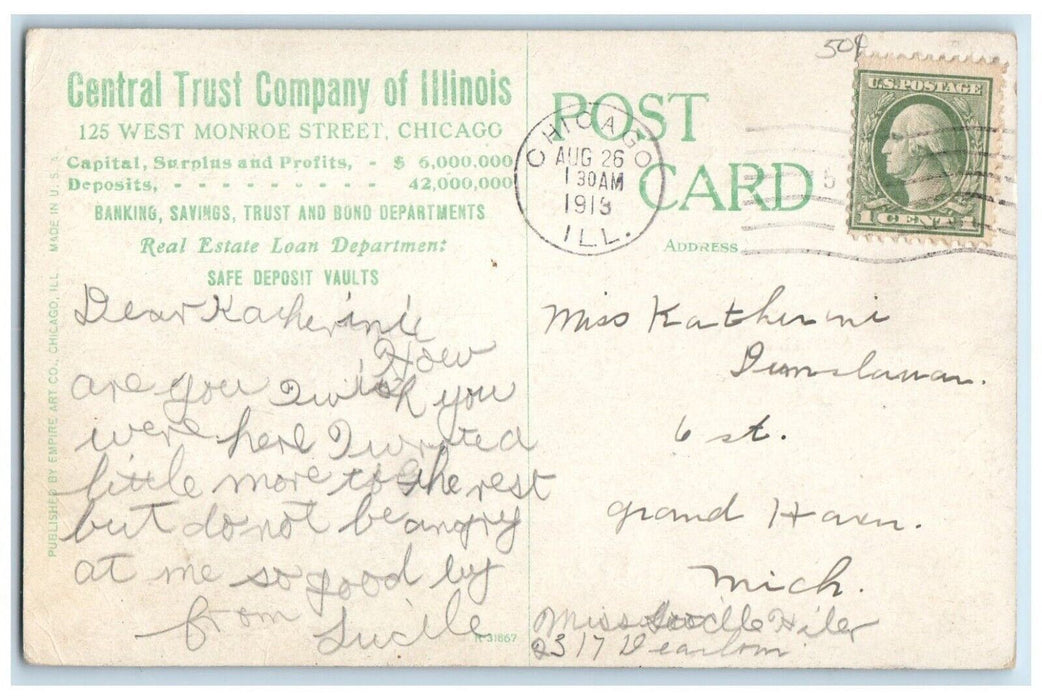 Central Trust Company of Illinois
125 WEST MONROE STREET, CHICAGO
Capital, Surplus and Profits, - $ 6,000,000
Deposits, - - - - - - - - - 42,000,000
BANKING, SAVINGS, TRUST AND BOND DEPARTMENTS
Real Estate Loan Department
SAFE DEPOSIT VAULTS
PUBLISHED BY EMPIRE ART CO., CHICAGO, ILL. MADE IN U.S.A.
Dear Katherine
How
are you I wish you
were here I wroted
little more to the rest
but do not be angry
at me so good by
from Lucile
R-31867
50¢
POST
CARD
ADDRESS
CHICAGO
AUG 26
1 30 AM
1913
ILL.
5
U.S. POSTAGE
1 CENT 1
Miss Katherine
6 st.
Grand Haven.
Mich.
Miss Lucille Hiler
2317 Dearborn